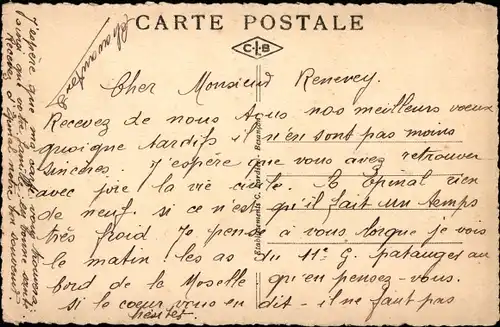 CARTE POSTALE
C.I.B
Cher Monsieur Renevey.
Recevez de nous tous nos meilleurs vœux
quoique tardifs il n'en sont pas moins
sincères. J'espère que vous avez retrouver
avec joie la vie civile. A Epinal rien
de neuf. si ce n'est qu'il fait un temps
très froid. Je pense à vous lorque je vois
le matin les as du 11e G. patauger au
bord de la Moselle qu'en pensez-vous.
si le coeur vous en dit - il ne faut pas
hésiter.
J'espère que ma carte vous trouvera
ainsi qui votre famille en bonne santé.
Recevez d'Epinal votre bon souvenir
Etablissements C.